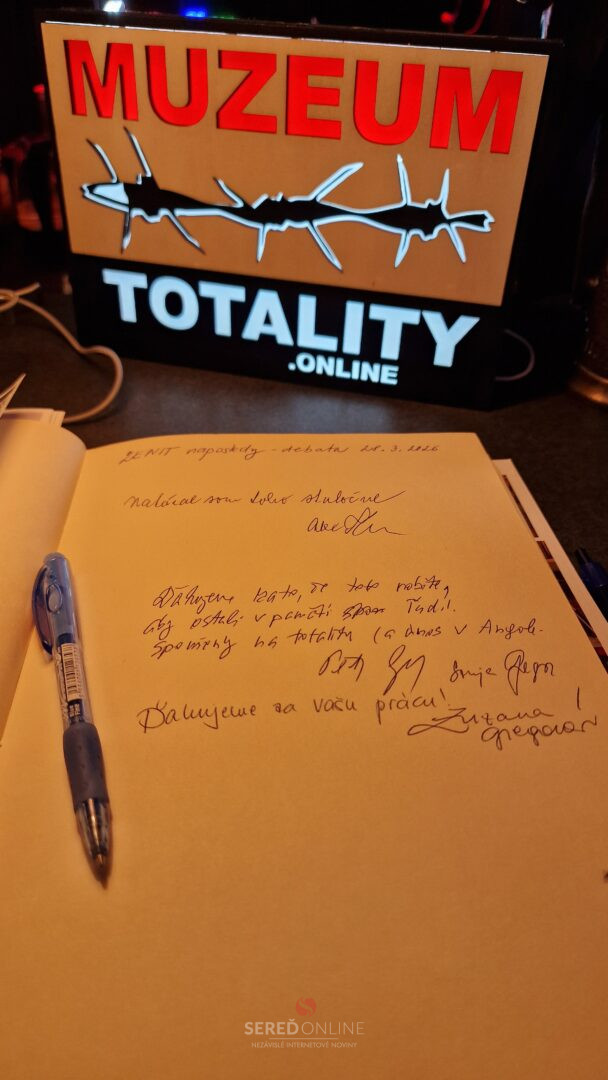 MUZEUM
TOTALITY
.ONLINE
ZENIT naposledy - debata 28.3.2026
som toho skutočne
Ďakujeme za to, že toto robíte,
aby ostali v pamäti ľudí.
spomieny na totality (a dnes v Angole.
Ďakujeme za vašu prácu!
Zuzana
Gregorová
SEREĎONLINE
NEZÁVISLÉ INTERNETOVÉ NOVINY